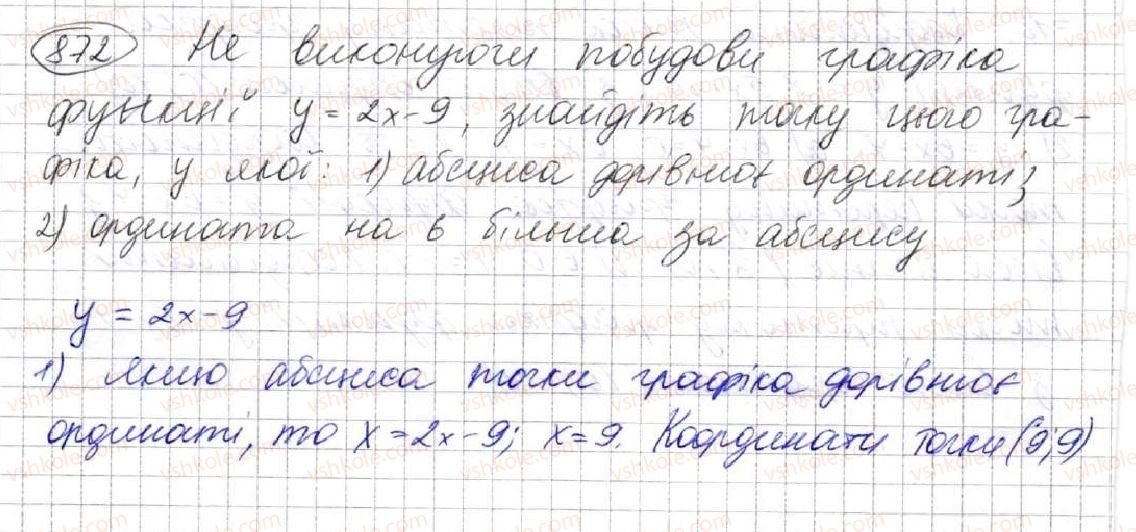 872 Не виконуючи побудови графіка
функції y = 2x-9, знайдіть точку цього гра-
фіка, у якої: 1) абсциса дорівнює ординаті;
2) ордината на 6 більша за абсцису
y = 2x-9
1) Якщо абсциса точки графіка дорівнює
ординаті, то x = 2x-9; x = 9. Координати точки (9;9)